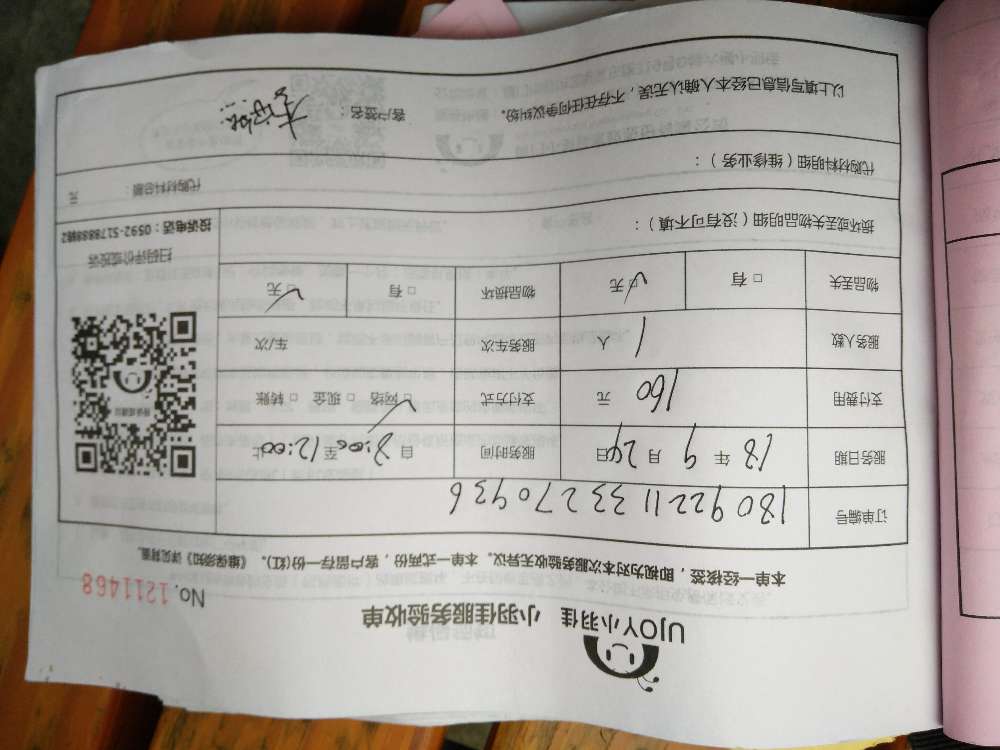 UJOY小羽佳 小羽佳服务验收单
No. 1211468
本单一经核签，即视为对本次服务验收无异议。本单一式两份，客户留存一份(红)。《雇保须知》详见背面。
订单编号 1809221133270936
服务日期 18 年 9 月 24 日 服务时间 自 8:00 至 12:00 止
支付费用 160 元 支付方式 □ 网络 □ 现金 □ 转账
服务人数 1 人 服务车次 车/次
物品丢失 □ 有 □ 无 物品损坏 □ 有 □ 无
扫码评价或投诉
投诉电话：0592-5178888转2
损坏或丢失物品明细（没有可不填）：
代购材料明细（维修业务）：
代购材料总额： 元
以上填写信息已经本人确认无误，不存在任何争议纠纷。 客户签名：